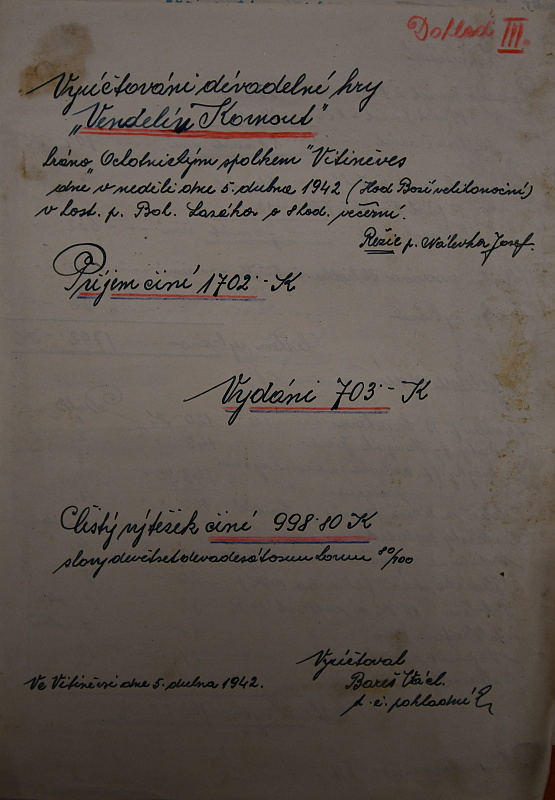 Doklad III.
Vyúčtování divadelní hry
„Vendelín Kornout"
hráno „Ochotnickým spolkem" Vitiněves
dne v neděli dne 5. dubna 1942 (Hod Boží velikonoční)
v host. p. Boh. Lasáka o 8 hod. večerní.
Režie p. Nálevka Josef.
Příjem činí 1702·- K
Vydání 703·- K
Čistý výtěžek činí 998·80 K
slovy devětsetdevadesátosum korun 80/100
Ve Vitiněvsi dne 5. dubna 1942.
Vyúčtoval
Bareš Václ.
t. č. pokladní